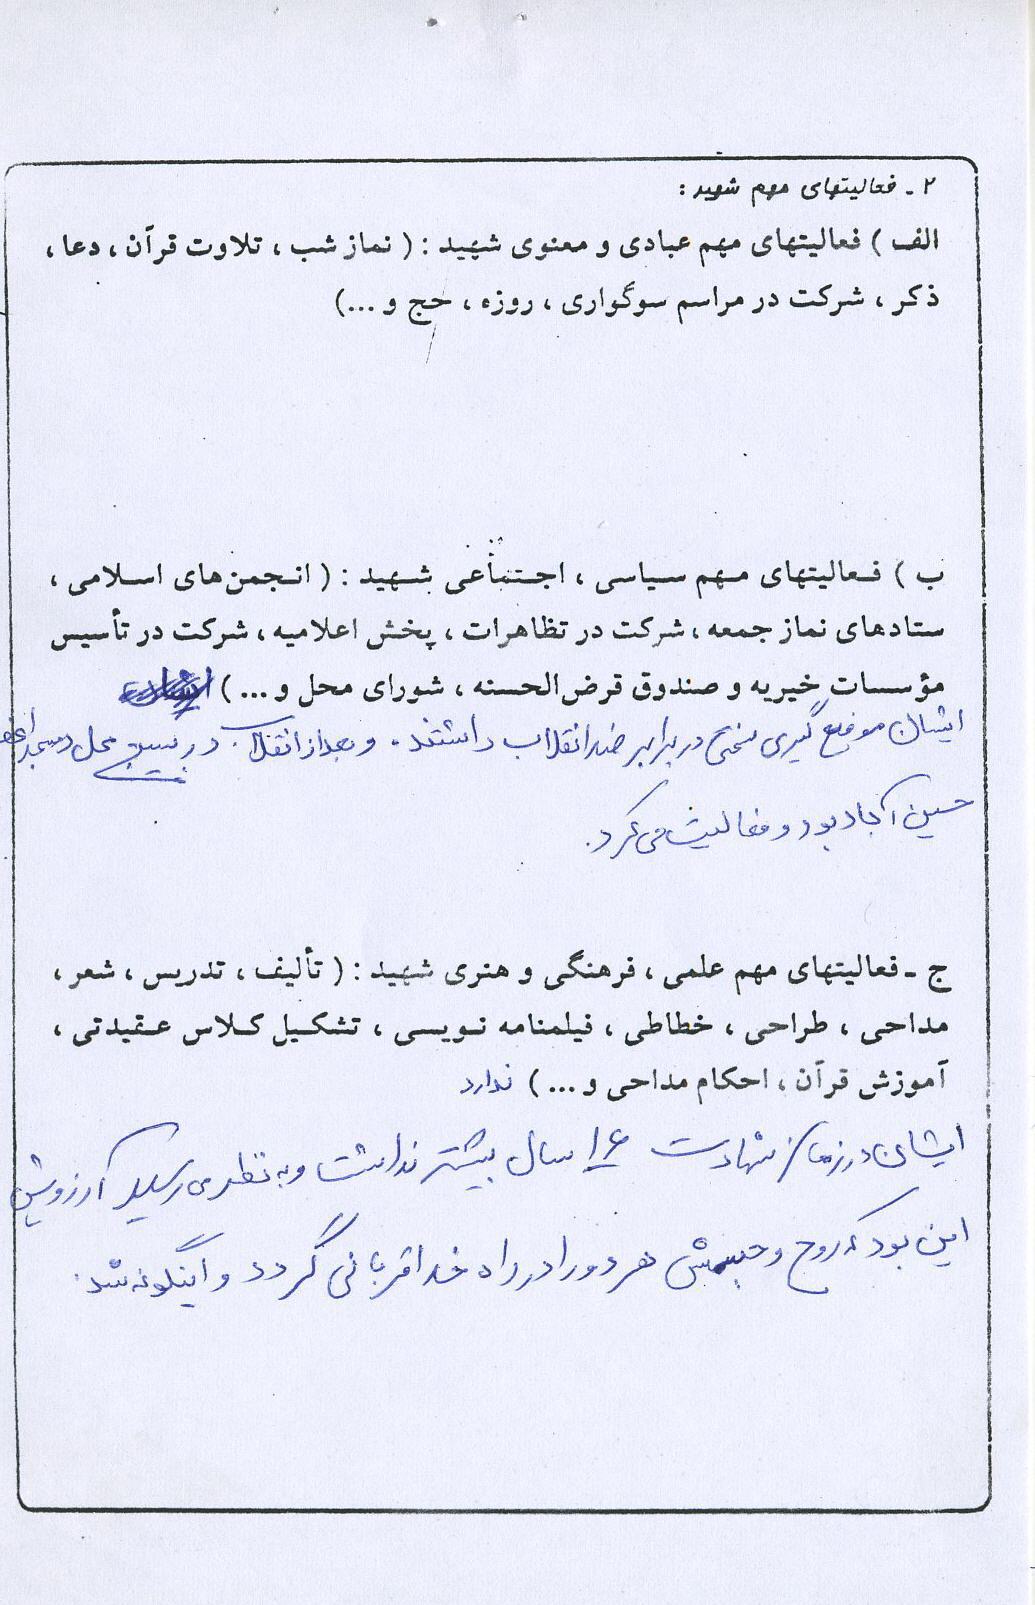 ۲ ـ فعالیتهای مهم شهید :
الف ) فعالیتهای مهم عبادی و معنوی شهید : ( نماز شب ، تلاوت قرآن ، دعا ،
ذکر ، شرکت در مراسم سوگواری ، روزه ، حج و ...)
ب ) فعالیتهای مهم سیاسی ، اجتماعی شهید : ( انجمن‌های اسلامی ،
ستادهای نماز جمعه ، شرکت در تظاهرات ، پخش اعلامیه ، شرکت در تأسیس
مؤسسات خیریه و صندوق قرض‌الحسنه ، شورای محل و ... )
ایشان موضع گیری سختی در برابر ضد انقلاب داشتند . و بعد از انقلاب در بسیج محل و مسجد
حسین آباد بود و فعالیت می کرد .
ج ـ فعالیتهای مهم علمی ، فرهنگی و هنری شهید : ( تألیف ، تدریس ، شعر ،
مداحی ، طراحی ، خطاطی ، فیلمنامه نویسی ، تشکیل کلاس عقیدتی ،
آموزش قرآن ، احکام مداحی و ... ) ندارد
ایشان در زمان شهادت ۱۶ سال بیشتر نداشت و به نظر می رسید آرزویش
این بود که روح و جسمش هر دو را در راه خدا قربانی گردد و اینگونه شد .